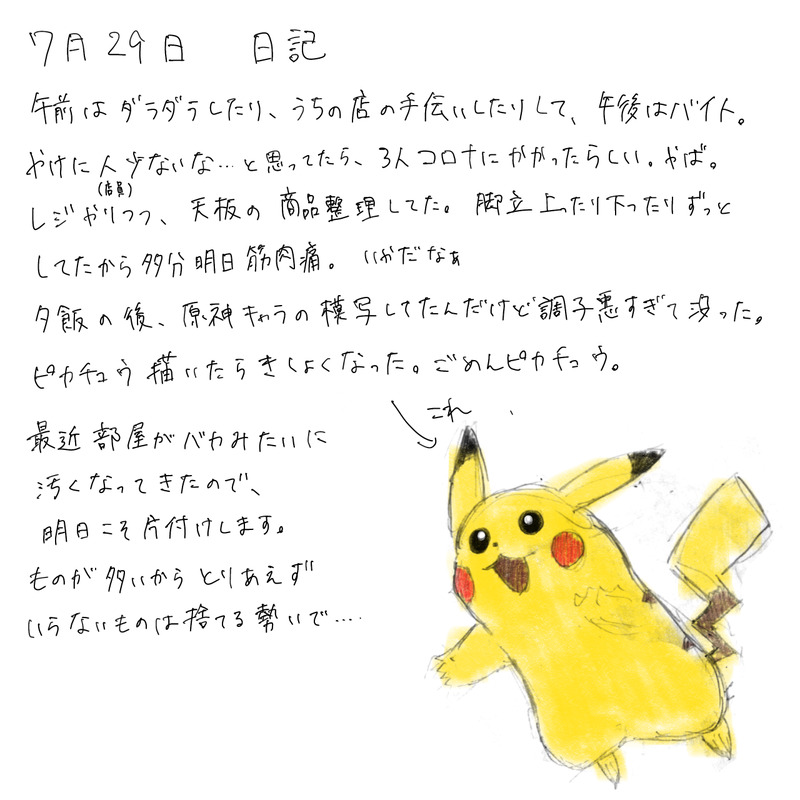 7月29日 日記
午前はダラダラしたり、うちの店の手伝いしたりして、午後はバイト。
やけに人少ないな…と思ってたら、3人コロナにかかったらしい。やば。
(店員)
レジやりつつ、天板の商品整理してた。脚立上ったり下ったりずっと
してたから多分明日筋肉痛。いやだなぁ
夕飯の後、原神キャラの模写してたんだけど調子悪すぎて没った。
ピカチュウ描いたらきしょくなった。ごめんピカチュウ。
これ
最近部屋がバカみたいに
汚くなってきたので、
明日こそ片付けします。
ものが多いからとりあえず
いらないものは捨てる勢いで….